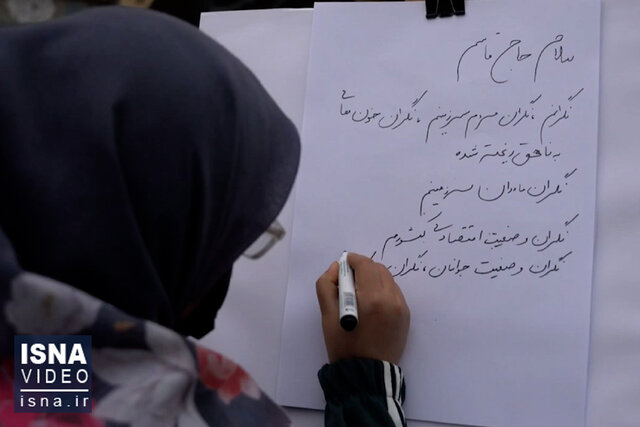 سلام حاج قاسم
نگرانم، نگران مردم سرزمینم، نگران خون هایی
به ناحق ریخته شده
نگران مادران سرزمینم
نگران وضعیت اقتصادی کشورم
نگران وضعیت جوانان، نگران
ISNA
VIDEO
isna.ir